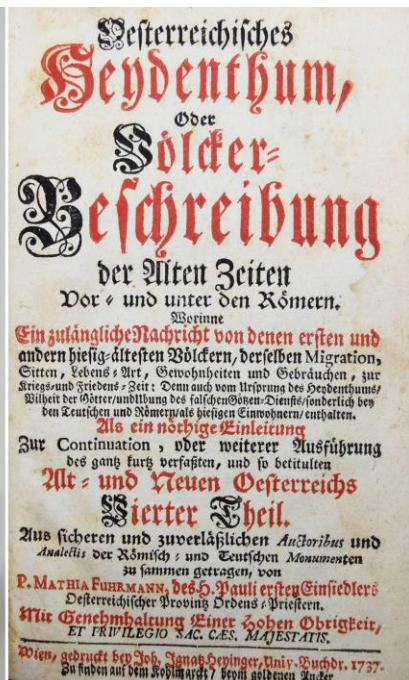 Oesterreichisches
Heydenthum,
Oder
Völcker-
Beschreibung
der Alten Zeiten
Vor- und unter den Römern.
Worinne
Ein zulängliche Nachricht von denen ersten und
andern hiesig-ältesten Völckern, derselben Migration,
Sitten, Lebens-Art, Gewohnheiten und Gebräuchen, zur
Kriegs- und Friedens-Zeit: Denn auch vom Ursprung des Heydenthums/
Vilheit der Götter/ und Ubung des falschen Götzen-Diensts/ sonderlich bey
den Teutschen und Römern/ als hiesigen Einwohnern/ enthalten.
Als ein nöthige Einleitung
Zur Continuation, oder weiterer Ausführung
des gantz kurtz verfaßten, und so betitulten
Alt- und Neuen Oesterreichs
Vierter Theil.
Aus sicheren und zuverläßlichen Auctoribus und
Analectis der Römisch- und Teutschen Monumenten
zu sammen getragen, von
P. MATHIA FUHRMANN, des H. Pauli ersten Einsiedlers
Oesterreichischer Provintz Ordens-Priestern.
Mit Genehmhaltung Einer Hohen Obrigkeit,
ET PRIVILEGIO SAC. CÆS. MAJESTATIS.
Wien, gedruckt bey Joh. Ignatz Heyinger, Univ. Buchdr. 1737.
Zu finden auf dem Kohlmarckt/ beym goldenen Ancker